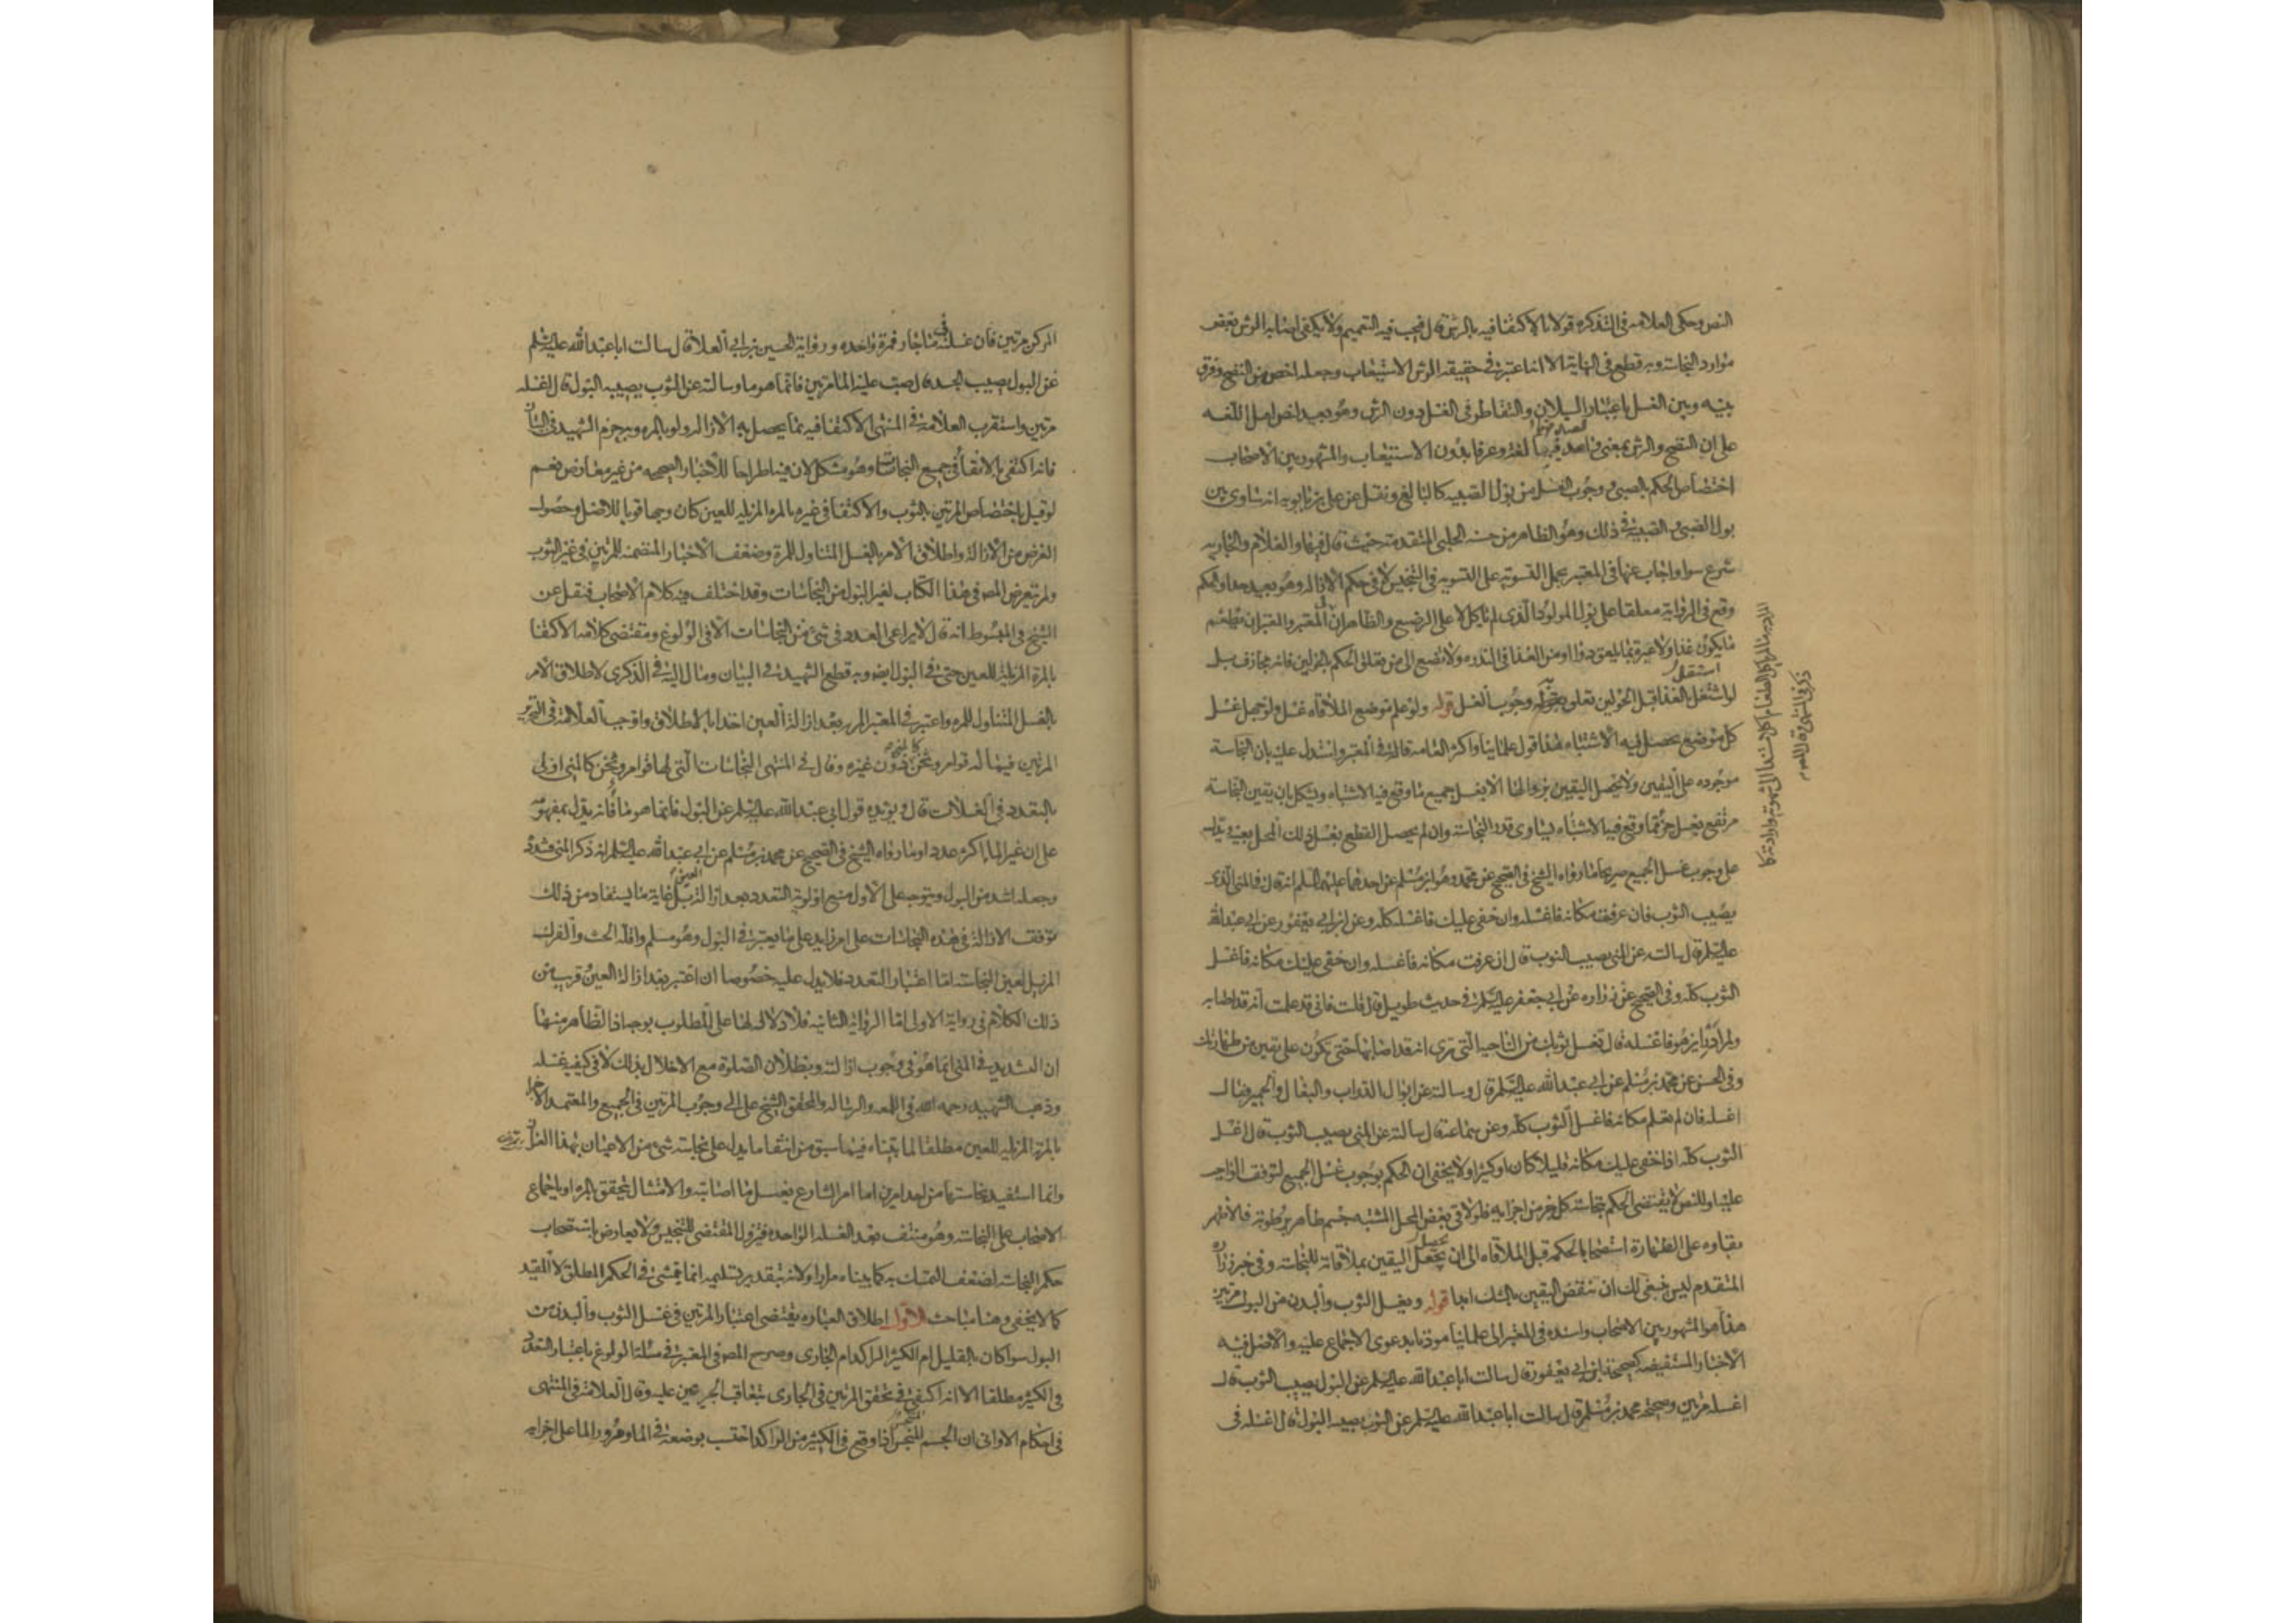 النص وحكى العلامه فى التذكره قولا بالاكتفا فيه بالرش قال فيجب فيه التعميم ولا يكفى اصابه الرش بعض
موارد النجاسة وبه قطع فى النهاية الا انه اعتبر فى حقيقه الرش الاستيعاب وجعله اخص من النضح وفرق
بينه وبين الغسل باعتبار السيلان والتقاطر فى الغسل دون الرش وهو بعيد لنص اهل اللغه
على ان النضح والرش بمعنى واحد لغة وعرفا بدون الاستيعاب والمشهور بين الاصحاب
اختصاص الحكم بالصبى وجوب الغسل من بول الصبيه كالبالغ ونقل عن على بن بابويه انه ساوى بين
بول الصبى والصبية فى ذلك وهو الظاهر من حسنه الحلبى المتقدمة حيث قال فيها والغلام والجاريه
شرع سوا واجاب عنها فى المعتبر بحمل التسوية على التسويه فى التنجيس لا فى حكم الازاله وهو بعيد جدا والحكم
وقع فى الرواية معلقا على بول المولود الذى لم ياكل لا على الرضيع والظاهر ان المعتبر
ما يكون غذا ولا عبرة بما يلعق دوا او من الغذا فى الندره ولا تصغ الى من يعلق الحكم بالحولين فانه مجازف بل
لو استقل بالغذا قبل الحولين تعلق ببوله وجوب الغسل قوله ولو علم موضع الملاقاه غسل ولو جهل غسل
كل موضع يحصل فيه الاشتباه هذا قول علمائنا واكثر العامة قاله فى المعتبر واستدل عليه بان النجاسة
موجوده على اليقين ولا يحصل اليقين بزوالها الا بغسل جميع ما وقع فيه الاشتباه ويشكل بان يقين النجاسة
مرتفع بغسل جزء مما وقع فيه الاشتباه يساوى قدر النجاسة وان لم يحصل القطع بغسل ذلك المحل بعينه ويدل
على وجوب غسل الجميع صريحا ما رواه الشيخ فى الصحيح عن محمد وهو ابن مسلم عن احدهما عليهما السلم انه قال فى المنى الذى
يصيب الثوب فان عرفت مكانه فاغسله وان خفى عليك فاغسله كله وعن ابن ابى يعفور عن ابى عبد الله
عليه السلم قال سالته عن المنى يصيب الثوب قال ان عرفت مكانه فاغسله وان خفى عليك مكانه فاغسل
الثوب كله وفى الصحيح عن زراره عن ابى جعفر عليه السلم فى حديث طويل قال قلت فانى قد علمت انه قد اصابه
ولم ادر اين هو فاغسله قال تغسل ثوبك من الناحيه التى ترى انه قد اصابها حتى تكون على يقين من طهارتك
وفى الحسن عن محمد بن مسلم عن ابى عبد الله عليه السلم قال وسالته عن ابوال الدواب والبغال والحمير فقال
اغسله فان لم تعلم مكانه فاغسل الثوب كله وعن سماعة قال سالته عن المنى يصيب الثوب قال اغسل
الثوب كله اذا خفى عليك مكانه قليلا كان او كثيرا ولا يخفى ان الحكم بوجوب غسل الجميع لتوقف الواجب
عليه او للنص لا يقتضى الحكم بنجاسة كل جزء من اجزايه فلو لاقى بعض المحل المشتبه جسم طاهر برطوبة فالاظهر
بقاوه على الطهارة استصحابا لحكمه قبل الملاقاه الى ان يحصل اليقين بملاقاته للنجاسة وفى خبر زراره
المتقدم ليس ينبغى لك ان تنقض اليقين بالشك ابدا قوله ويغسل الثوب والبدن من البول مرتين
هذا هو المشهور بين الاصحاب واسنده فى المعتبر الى علمائنا موذنا بدعوى الاجماع عليه والاصل فيه
الاخبار المستفيضه كصحيحة ابن ابى يعفور قال سالت ابا عبد الله عليه السلم عن البول يصيب الثوب قال
اغسله مرتين وصحيحه محمد بن مسلم قال سالت ابا عبد الله عليه السلم عن الثوب يصيبه البول قال اغسله فى
المركن مرتين فان غسلته فى ماء جار فمرة واحده ورواية الحسين بن ابى العلا قال سالت ابا عبد الله عليه السلم
عن البول يصيب الجسد قال صب عليه الماء مرتين فانما هو ما وسالته عن الثوب يصيبه البول قال اغسله
مرتين واستقرب العلامة فى المنتهى الاكتفا فيه بما يحصل به الازاله ولو بالمره وبه جزم الشهيد فى البيان
فانه اكتفى بالانقا فى جميع النجاسات وهو مشكل لان فيه اطراحا للاخبار الصحيحه من غير معارض نعم
لو قيل باختصاص المرتين بالثوب والاكتفا فى غيره بالمره المزيله للعين كان وجها قويا للاصل وحصول
الغرض من الازالة واطلاق الامر بالغسل المتناول للمرة وضعف الاخبار المتضمنه للمرتين فى غير الثوب
ولم يتعرض المص فى هذا الكتاب لغير البول من النجاسات وقد اختلف فيه كلام الاصحاب فنقل عن
الشيخ فى المبسوط انه قال لا يراعى العدد فى شىء من النجاسات الا فى الولوغ ومقتضى كلامه الاكتفا
بالمرة المزيلة للعين حتى فى البول ايضا وبه قطع الشهيد فى البيان ومال اليه فى الذكرى لاطلاق الامر
بالغسل المتناول للمره واعتبر فى المعتبر المره بعد ازالة العين اخذا بالاطلاق واوجب العلامة فى التحرير
المرتين فيما له قوام وثخن كالمنى دون غيره وقال فى المنتهى النجاسات التى لها قوام وثخن كالمنى اولى
بالتعدد فى الغسلات قال ويؤيده قول ابى عبد الله عليه السلم عن البول فانما هو ما فانه يدل بمفهومه
على ان غير الماء اكثر عددا وما رواه الشيخ فى الصحيح عن محمد بن مسلم عن ابى عبد الله عليه السلم انه ذكر المنى فشدده
وجعله اشد من البول ويتوجه على الاول منع اولوية التعدد بعد ازالة العين بل غاية ما يستفاد من ذلك
توقف الازالة فى هذه النجاسات على امر زايد على ما يعتبر فى البول وهو مسلم واقله الحث والفرك
المزيل لعين النجاسة اما اعتبار التعدد فلا يدل عليه خصوصا ان اعتبر بعد ازالة العين قريب من
ذلك الكلام فى رواية الاولى اما الرواية الثانيه فلا دلاله لها على المطلوب بوجه اذ الظاهر منها
ان التشديد فى المنى انما هو فى وجوب ازالته وبطلان الصلوة مع الاخلال بذلك لا فى كيفيه غسله
وذهب الشهيد رحمه الله فى اللمعه والرساله والمحقق الشيخ على الى وجوب المرتين فى الجميع والمعتمد الاجتزا
بالمرة المزيله للعين مطلقا لما بيناه فيما سبق من انتفا ما يدل على نجاسة شىء من الاعيان بهذا العنوان
وانما استفيد نجاستها من احد امرين اما امر الشارع بغسل ما اصابته والامتثال يتحقق بالمره او باجماع
الاصحاب على النجاسة وهو منتف بعد الغسله الواحده فيزول المقتضى للتنجيس ولا يعارض باستصحاب
حكم النجاسة لضعف التمسك به كما بيناه مرارا ولانه بتقدير تسليمه انما يتمشى فى الحكم المطلق لا المقيد
كما لا يخفى وهنا مباحث الاول اطلاق العباره يقتضى اعتبار المرتين فى غسل الثوب والبدن من
البول سوا كان بالقليل ام الكثير الراكد ام الجارى وصرح المص فى المعتبر فى مسئلة الولوغ باعتبار التعدد
فى الكثير مطلقا الا انه اكتفى فى تحقق المرتين فى الجارى بتعاقب الجريتين عليه وقال العلامة فى المنتهى
فى احكام الاوانى ان الجسم النجس اذا وقع فى الكثير من الراكد احتسب بوضعه فى الماء ومرور الماء على اجزايه